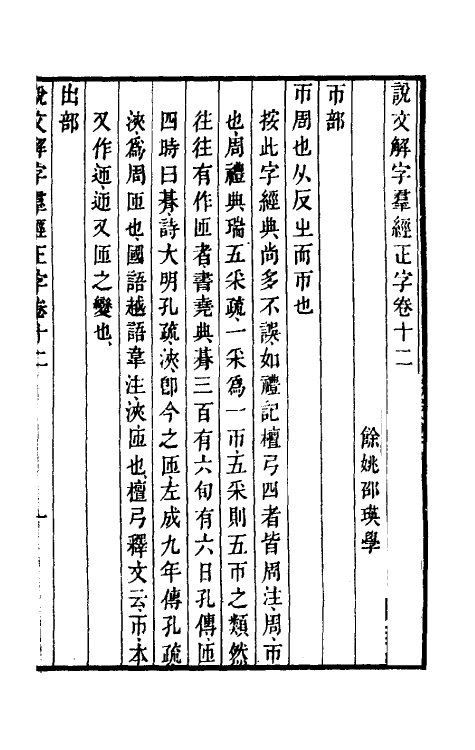 說文解字羣經正字卷十二
餘姚邵瑛學
帀部
帀周也从反㞢而帀也
按此字經典尚多不誤如禮記檀弓四者皆周注周帀
也周禮典瑞五采疏一采爲一帀五采則五帀之類然
往往有作匝者書堯典朞三百有六旬有六日孔傳匝
四時曰朞詩大明孔疏浹卽今之匝左成九年傳孔疏
浹爲周匝也國語越語韋注浹匝也檀弓釋文云帀本
又作迊迊又匝之變也
出部
說文解字羣經正字卷十二